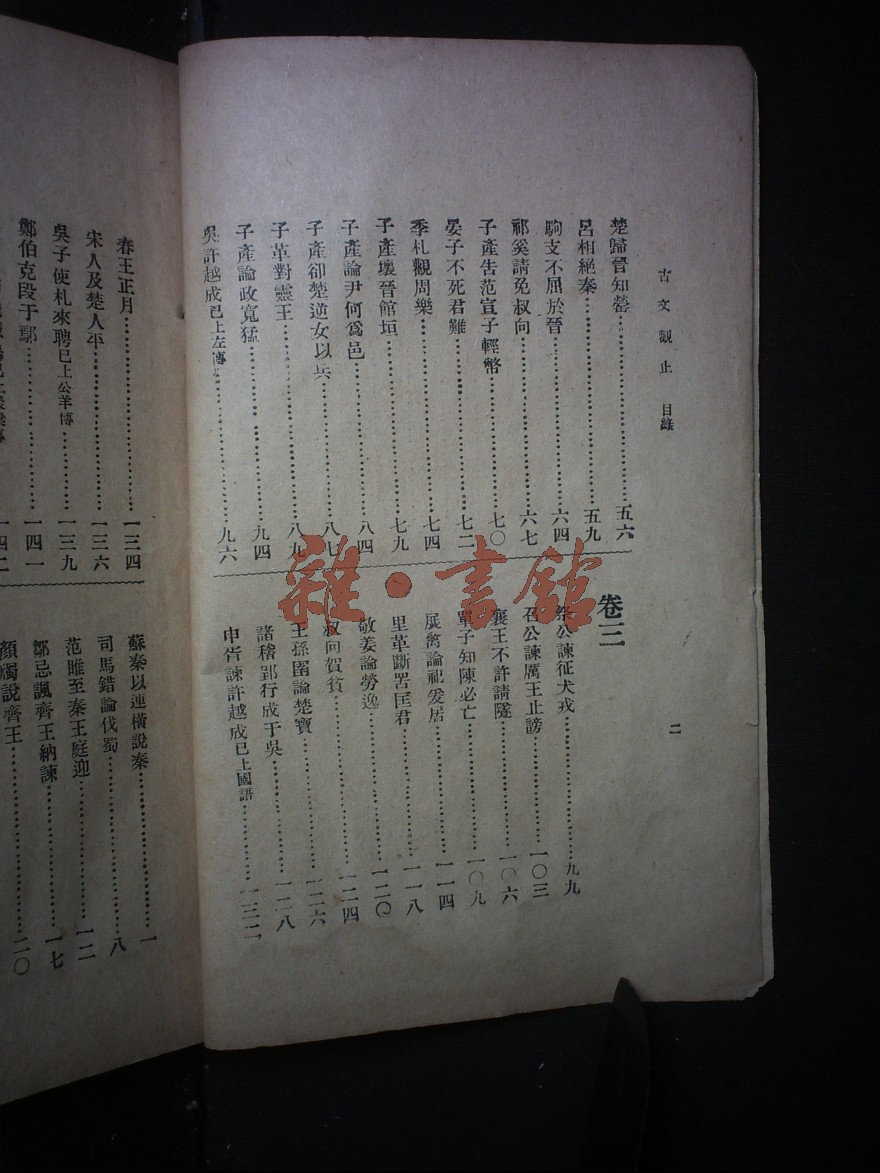 古文觀止 目錄
二
楚歸晉知罃……五六
呂相絕秦……五九
駒支不屈於晉……六四
祁奚請免叔向……六七
子產告范宣子輕幣……七〇
晏子不死君難……七二
季札觀周樂……七四
子產壞晉館垣……七九
子產論尹何爲邑……八四
子產卻楚逆女以兵……八七
子革對靈王……八九
子產論政寬猛……九四
吳許越成已上左傳……九六
卷三
祭公諫征犬戎……九九
召公諫厲王止謗……一〇三
襄王不許請隧……一〇六
單子知陳必亡……一〇九
展禽論祀爰居……一一四
里革斷罟匡君……一一八
敬姜論勞逸……一二〇
叔向賀貧……一二四
王孫圉論楚寶……一二六
諸稽郢行成于吳……一二八
申胥諫許越成已上國語……一三二
春王正月……一三四
宋人及楚人平……一三六
吳子使札來聘已上公羊傳……一三九
鄭伯克段于鄢……一四一
一四二
蘇秦以連橫說秦……一
司馬錯論伐蜀……八
范雎至秦王庭迎……一二
鄒忌諷齊王納諫……一七
顏斶說齊王……二〇
雜·書館